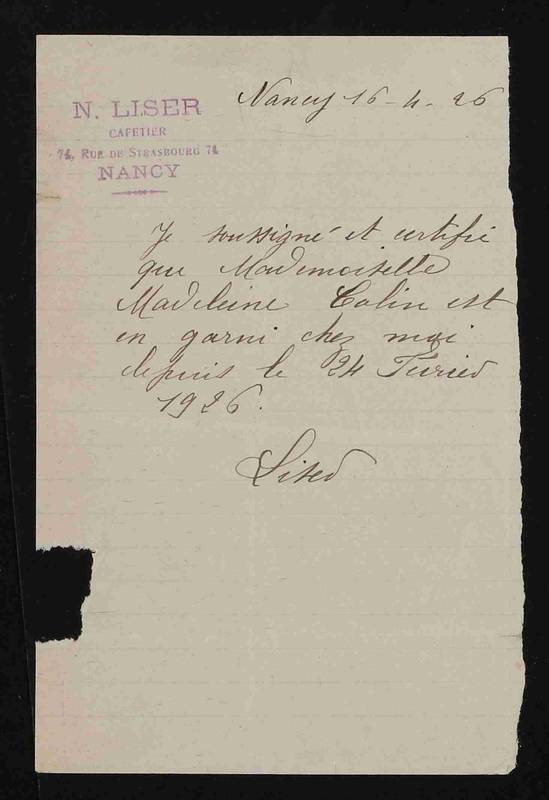 N. LISER
CAFETIER
74, RUE DE STRASBOURG 74
NANCY
Nancy 16-4-26
Je soussigné et certifie
que Mademoiselle
Madeleine Colin est
en garni chez moi
depuis le 24
1926.
Liser